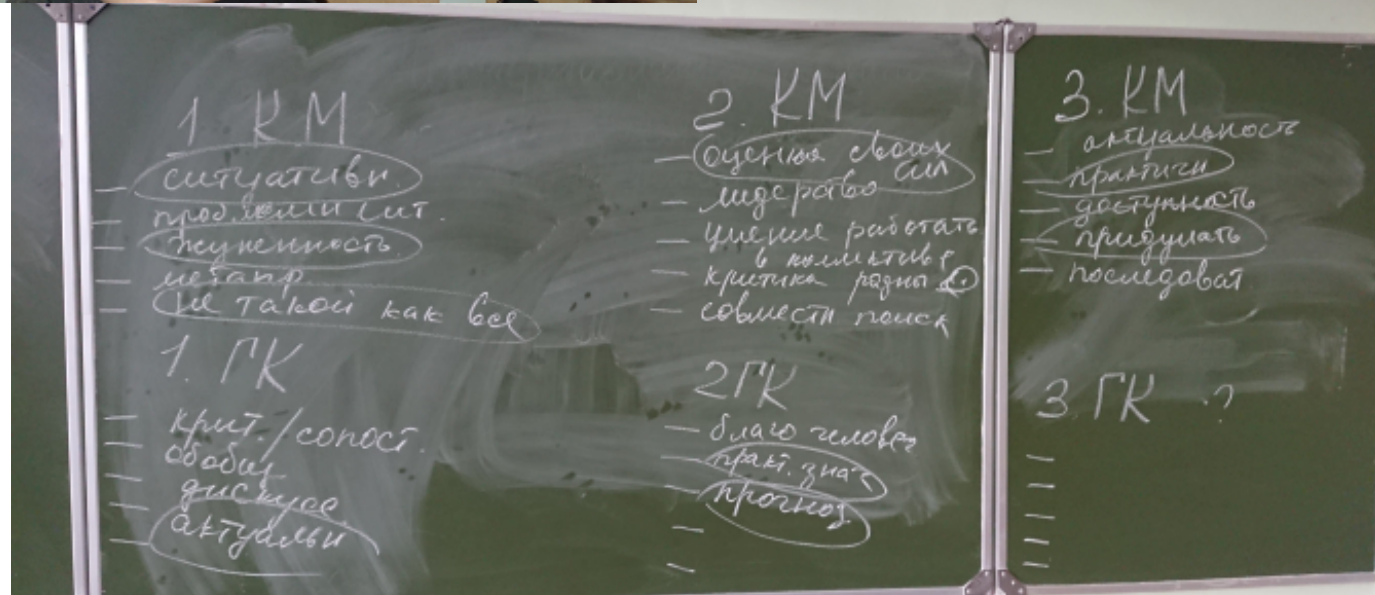 1 КМ
— ситуативн.
— проблемн сит.
— жизненность
— метапр.
— не такой как все
1. ГК
— крит./сопост.
— обобщ
— дискусс.
— актуальн
—
2. КМ
— оценка своих
сил
— лидерство
— умение работать
в коллективе
— критика
— совместн поиск
2 ГК
— благо человеч
— практ. знач
— прогноз
—
—
3. КМ
— актуальность
— практичн
— доступность
— придумать
— последоват
3 ГК ?
—
—
—
—
—